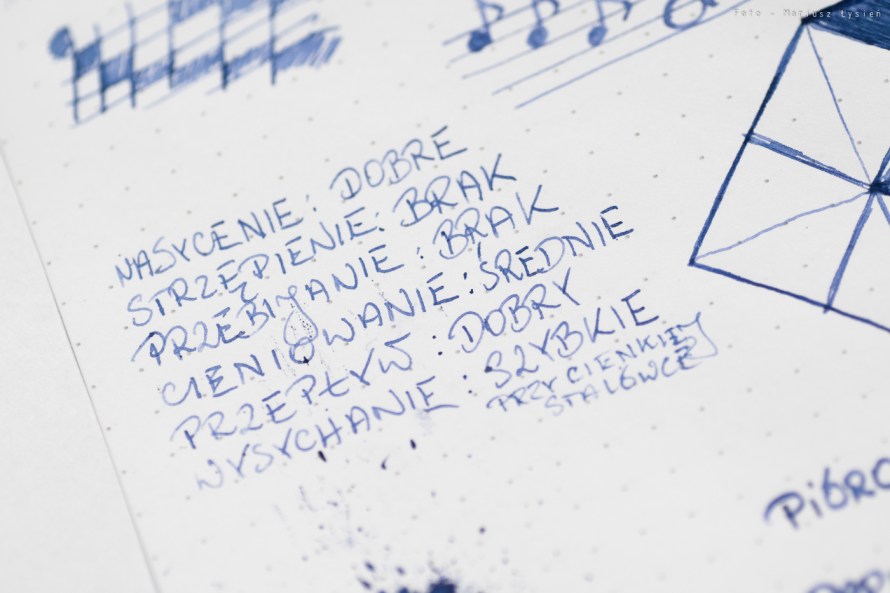 Foto - Mateusz Łysień
NASYCENIE: DOBRE
STRZĘPIENIE: BRAK
PRZEBIJANIE: BRAK
CIENIOWANIE: ŚREDNIE
PRZEPŁYW: DOBRY
WYSYCHANIE: SZYBKIE
PRZY CIENKIEJ
STALÓWCE
PIÓRO